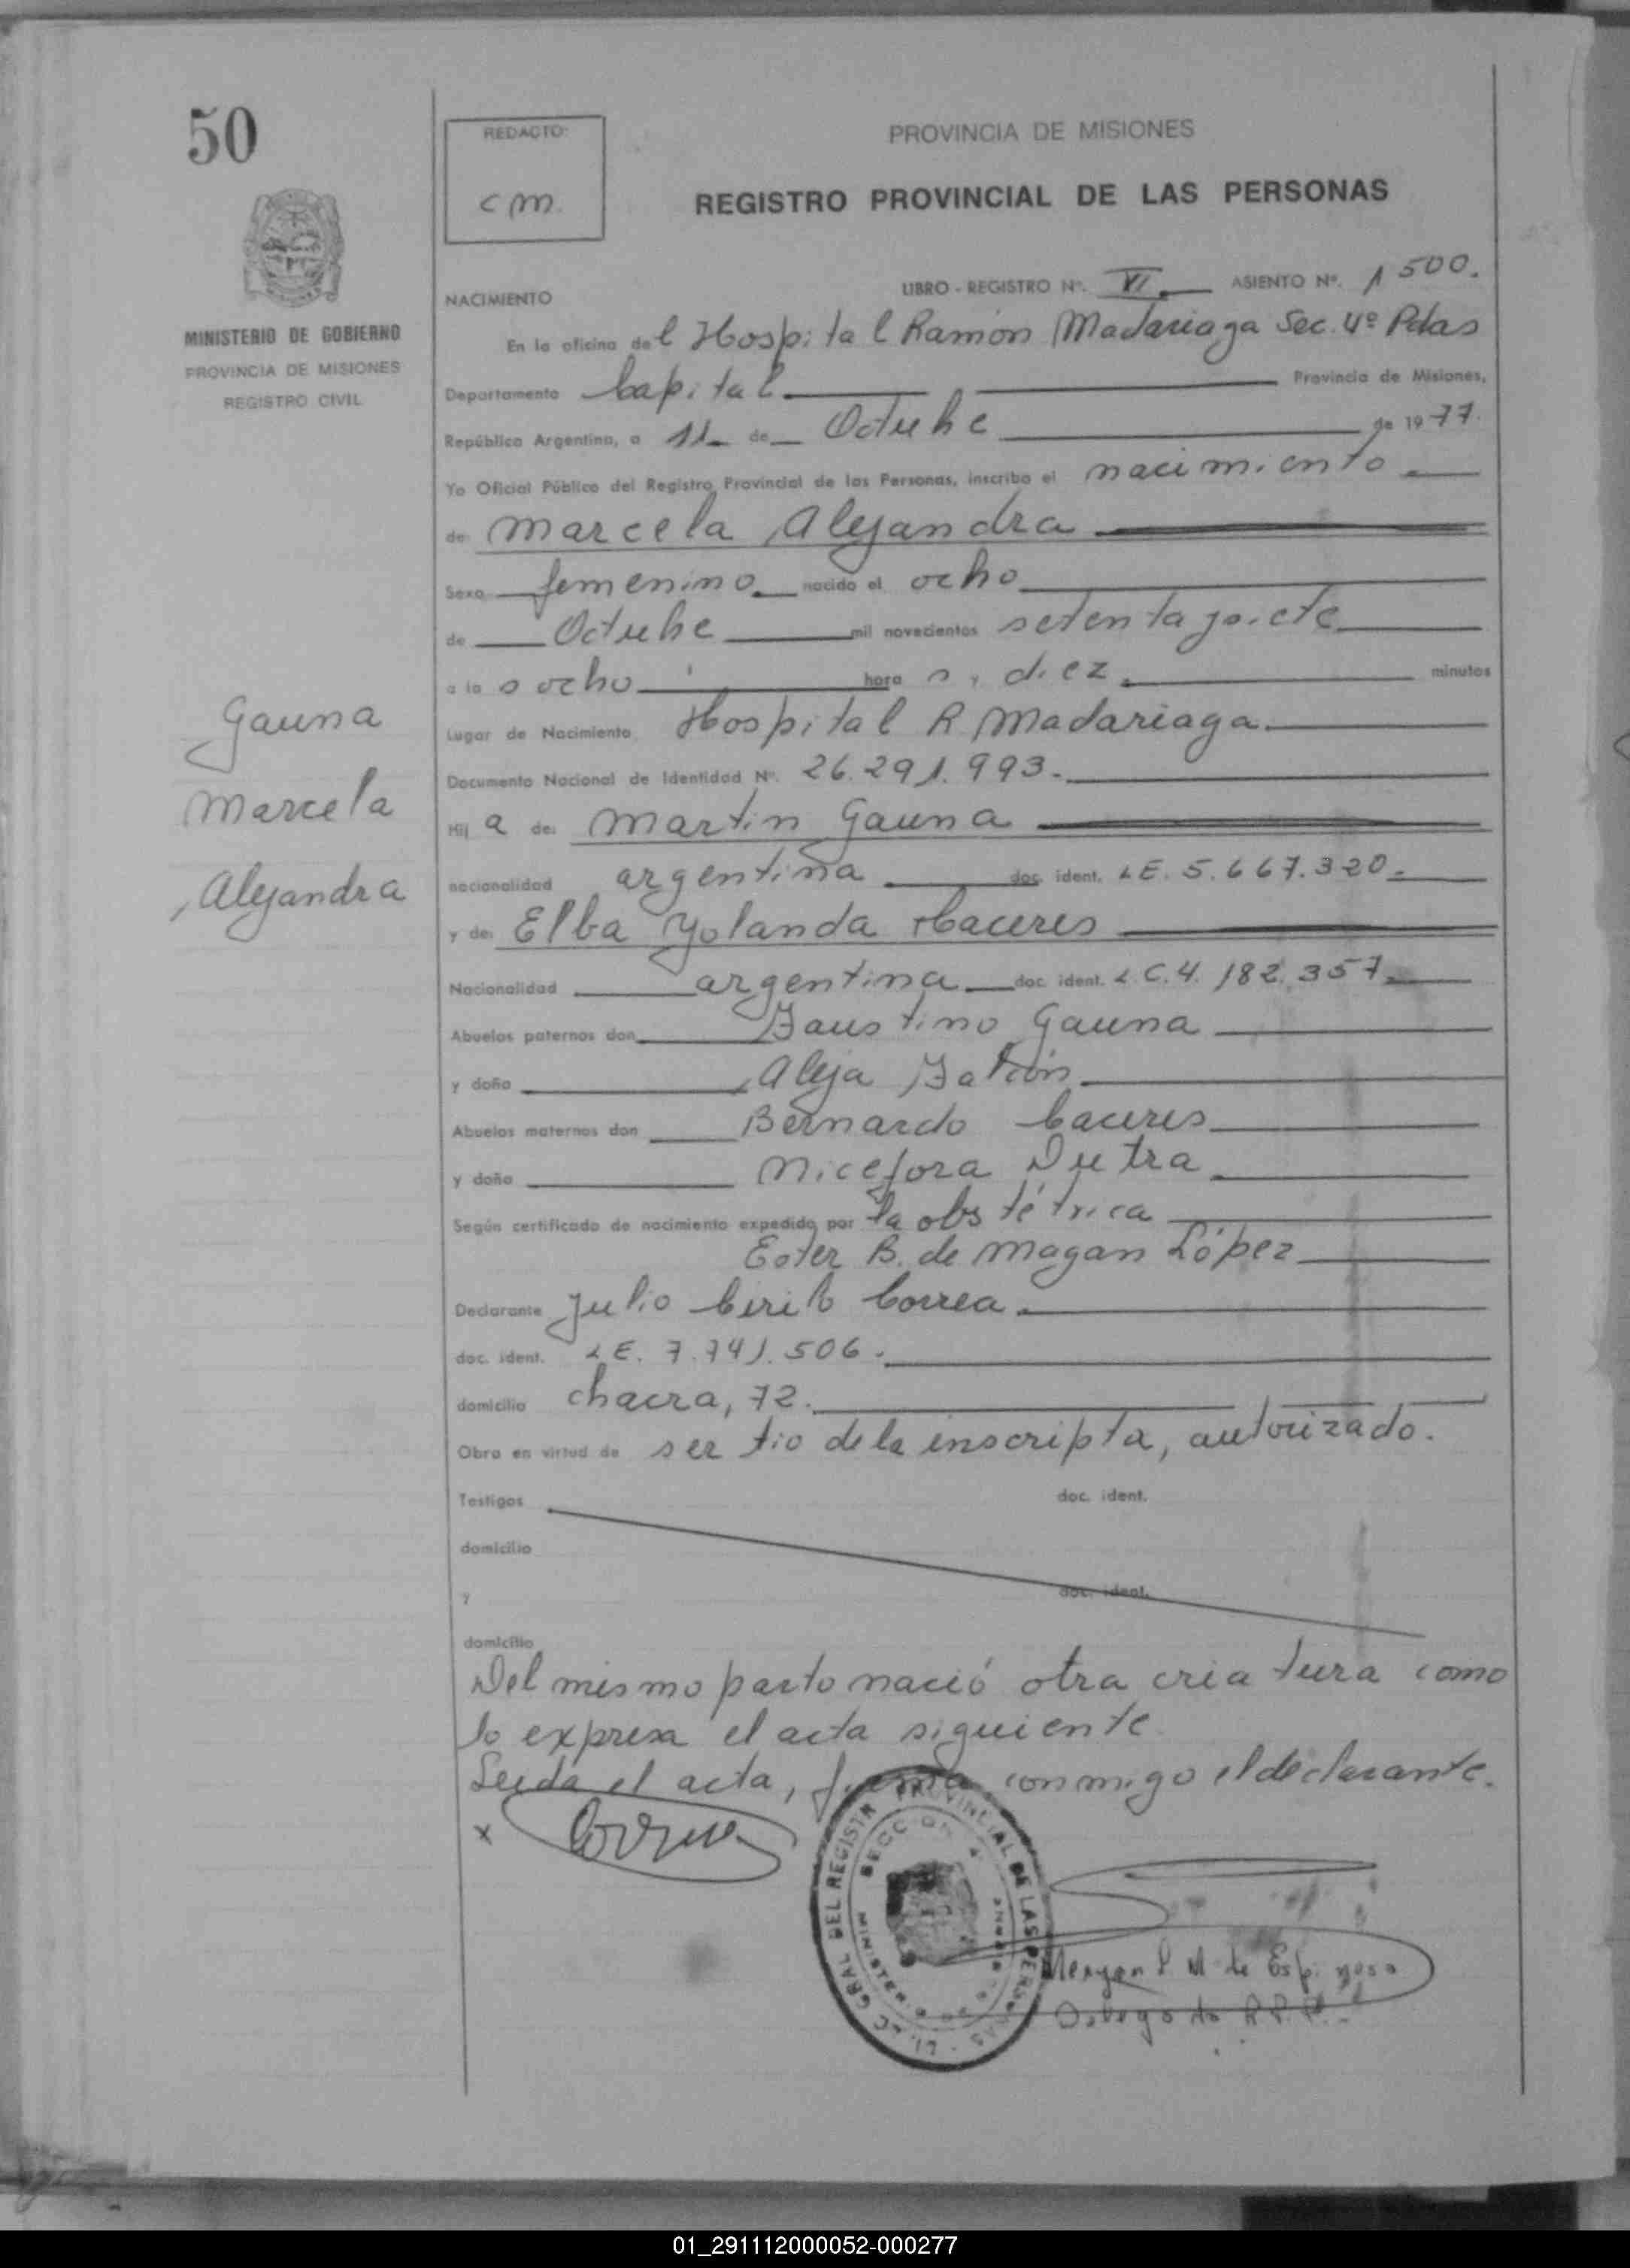 50
REDACTO:
cm.
PROVINCIA DE MISIONES
REGISTRO PROVINCIAL DE LAS PERSONAS
MINISTERIO DE GOBIERNO
PROVINCIA DE MISIONES
REGISTRO CIVIL
NACIMIENTO
LIBRO - REGISTRO Nº. VI. ASIENTO Nº. 1500.
En la oficina del Hospital Ramón Madariaga Sec. 4º Pdas
Departamento Capital Provincia de Misiones,
República Argentina, a 11 de Octubre de 1977.
Yo Oficial Público del Registro Provincial de las Personas, inscribo el nacimiento
de: Marcela Alejandra
Sexo femenino nacido el ocho
de Octubre mil novecientos setenta y siete
a las ocho horas y diez minutos
Lugar de Nacimiento Hospital R Madariaga
Documento Nacional de Identidad Nº. 26.291.993.
Hija de: Martin Gauna
nacionalidad argentina doc. ident. LE. 5.667.320.
y de: Elba Yolanda Caceres
Nacionalidad argentina doc. ident. L.C. 4.182.357
Abuelos paternos don Faustino Gauna
y doña Aleja
Abuelos maternos don Bernardo Caceres
y doña Nicefora Dutra
Según certificado de nacimiento expedido por la obstétrica
Ester B. de Magan López
Declarante Julio Cirilo Correa
doc. ident. LE. 7.741.506.
domicilio chacra, 72.
Obra en virtud de ser tio de la inscripta, autorizado.
Testigos doc. ident.
domicilio
y doc. ident.
domicilio
Del mismo parto nació otra criatura como
lo expresa el acta siguiente.
Leida el acta, firma conmigo el declarante.
x Correa
Gauna
Marcela
Alejandra
GRAL DEL REGISTRO PROVINCIAL DE LAS PERSONAS
SECCION 4
M. de Espinosa
Delegada R.P.P.
01_291112000052-000277